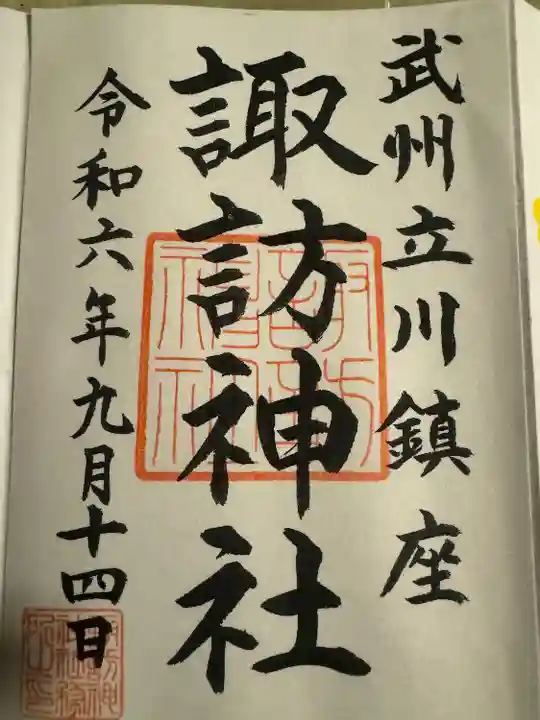 武州立川鎮座
諏訪神社
令和六年九月十四日